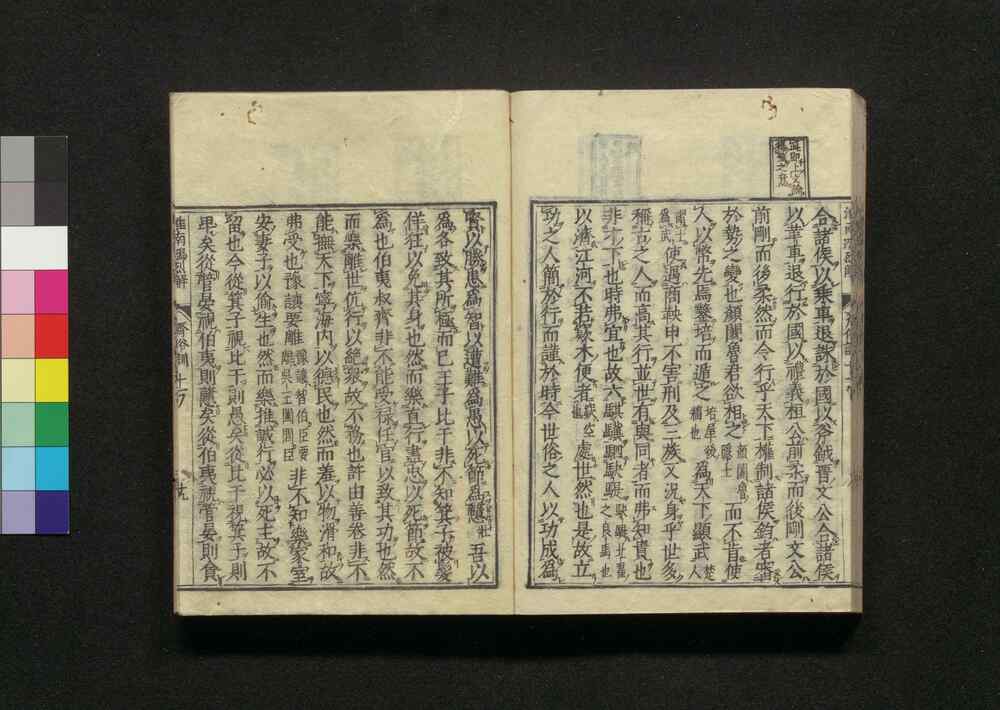 合諸侯以乗車退誅於國以斧鉞晋文公合諸侯
以革車退行於國以禮義桓公前柔而後剛文公
前剛而後柔然而令行乎天下権制諸侯鈞者審
於勢之變也顔闔魯君欲相之而不肯使
人以幣先焉鑿培而遁之培屋後墻也為天下顕武楚人
為武使遇商鞅申不害刑及三族又況身乎世多
稱古之人而高其行並世有與同者而弗知貴也
非才下也時弗宜也故六騏驥駟駃騠駃騠北翟之良馬也
以濟江河不若窾木便者窾空處世然也是故立
功之人簡於行而謹於時今世俗之人以功成為
賢以勝患為智以遭難為愚以死節為戇吾以
為各致其所極而已王子比干非不知箕子被髪
佯狂以免其身也然而樂直行盡忠以死節故不
為也伯夷叔齊非不能受禄任官以致其功也然
而樂離世伉行以絶衆故不務也許由善卷非不
能撫天下寧海内以徳民也然而羞以物滑和故
弗受也豫讓要離豫讓智伯臣要離呉王闔閭臣非不知樂家室
安妻子以偸生也然而樂推誠行必以死主故不
留也今從箕子視比干則愚矣從比干視箕子則
卑矣從管晏視伯夷則戇矣從伯夷視管晏則貪
淮南鴻烈解 齊俗訓十一